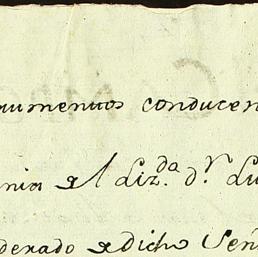 umentos conducen
nia el Liz.da d.r Lu
derado de dicho Señ